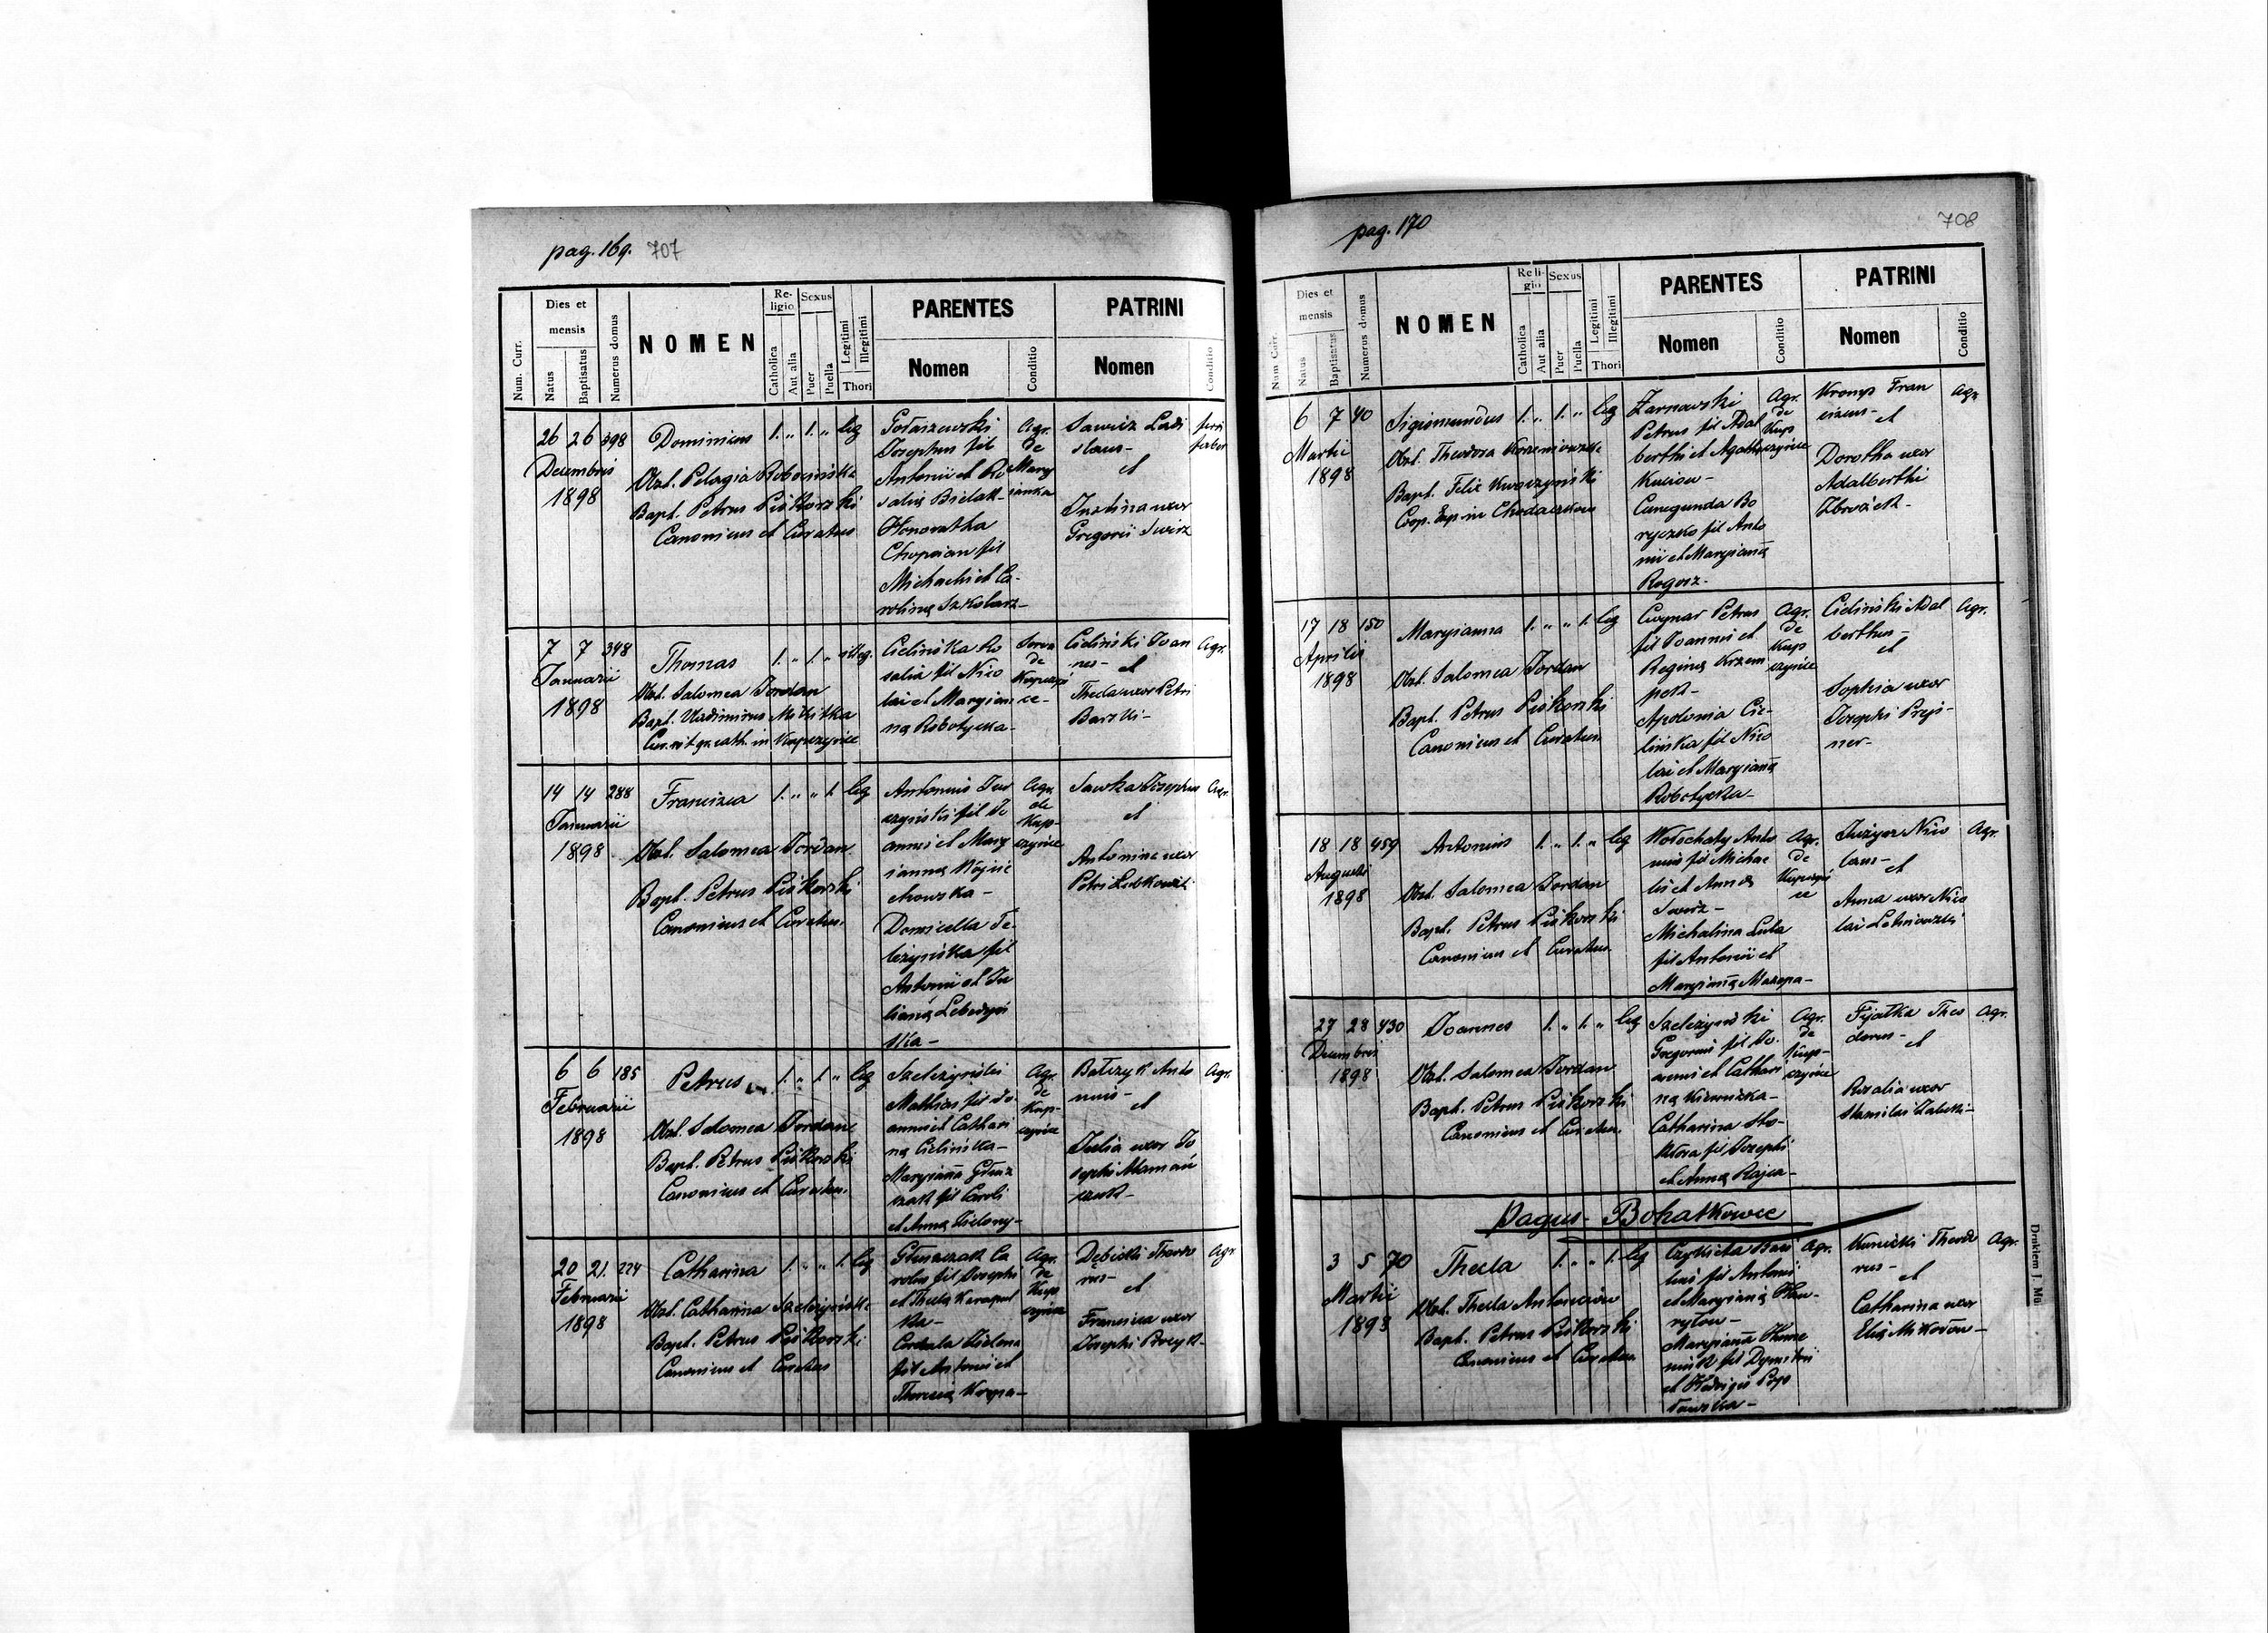 pag. 169. 707
Num. Curr.
Dies et mensis
Natus
Baptisatus
Numerus domus
NOMEN
Religio
Catholica
Aut alia
Sexus
Puer
Puella
Legitimi
Illegitimi
Thori
PARENTES
Nomen
Conditio
PATRINI
Nomen
Conditio
26 26 398
Decembris
1898
Dominicus 1. „ 1. „ leg
Obst. Pelagia
Bapt. Petrus Piškorski
Canonicus et Curatus
Gołaszewski
Josephus fil
Antonii et Ro
salię Bielak-
Honoratha
Chopcian fil
Michaelis et Ca-
rolinę Szkolarz-
Agr.
de
Mary
janka
Sawicz Ladi
slaus-
et
Justina uxor
Gregorii Swirz
ferri
faber
7 7 348
Januarii
1898
Thomas 1. „ 1. „ illeg.
Obst. Salomea Jordan
Bapt. Vladimirus Mikitka
gr. cath. in Kupczyńce
Cielińska Ro
salia fil Nico
lai et Maryan
nę Robotycka-
de
Kupczyń
ce-
Cieliński Joan
nes- et
Thecla uxor Petri
Barski-
Agr.
14 14 288
Januarii
1898
Francisca 1. „ „ 1. leg
Obst. Salomea Jordan
Bapt. Petrus Piškorski
Canonicus et Curatus.
Antonius Jur
czyński fil Jo
annis et Mary
iannę Wojcie
chowska-
Domicella Te-
liczyńska fil
Antonii et Ju
lianę Lebedyń
ska-
Agr.
de
Kup-
czyńce
Sawka Josephus
et
Antonina uxor
Petri
Agr.
6 6 185
Februarii
1898
Petrus 1. „ 1. „ leg
Obst. Salomea Jordan
Bapt. Petrus Piškorski
Canonicus et Curatus.
Szeliżyński
Mathias fil Jo
annis et Cathari
nę Cielińska-
Maryanna Głusz
czak fil Caroli
et Annę Zielony-
Agr.
de
Kup-
czyńce
Bałczyk Anto
nius-
et
Julia uxor Jo
sephi
Agr.
20 21. 224
Februarii
1898
Catharina 1. „ „ 1. leg
Obst. Catharina Szeliżyńska
Bapt. Petrus Piškorski
Canonicus et Curatus
Głuszczak Ca
rolus fil Josephi
et Theclę
Cordula Zielona
fil Antonii et
Theresię Krupa-
Agr.
de
Kup
czyńce
Dębicki Theodo
rus-
et
Francisca uxor
Josephi
Agr.
pag. 170 708
Num. Curr.
Dies et mensis
Natus
Baptisatus
Numerus domus
NOMEN
Religio
Catholica
Aut alia
Sexus
Puer
Puella
Legitimi
Illegitimi
Thori
PARENTES
Nomen
Conditio
PATRINI
Nomen
Conditio
6 7 40
Martii
1898
Sigismundus 1. „ 1. „ leg
Obst. Theodora Korzeniowska
Bapt. Felix Kwaczyński
Coop. Exp. in Chodaczków
Żarnowski
Petrus fil Adal
berthi et Agathę
Kuciow-
Cunegunda Bo
ryczko fil Anto
nii et Maryianę
Rogosz-
Agr.
de
Kup
czyńce
Kromp Fran
ciscus-
et
Dorotha uxor
Adalberthi
Zbrożek-
Agr.
17 18 150
Aprilis
1898
Maryianna 1. „ „ 1. leg
Obst. Salomea Jordan
Bapt. Petrus Piškorski
Canonicus et Curatus.
Cwynar Petrus
fil Joannis et
Reginę Krzem
pek-
Apolonia Cie-
lińska fil Nico
lai et Maryianę
Robotycka-
Agr.
de
Kup
czyńce
Cieliński Adal
berthus-
et
Sophia uxor
Josephi Prejs-
ner-
Agr.
18 18 459
Augusti
1898
Antonius 1. „ 1. „ leg
Obst. Salomea Jordan
Bapt. Petrus Piškorski
Canonicus et Curatus.
Wołschaty Anto
nius fil Michae
lis et Annę
Swirz-
Michalina Luba
fil Antonii et
Maryianę Mazepa-
Agr.
de
Kupczyń
ce
Nico
laus-
et
Anna uxor Nico
lai Letniowski
Agr.
27 28 430
Decembris
1898
Joannes 1. „ 1. „ leg
Obst. Salomea Jordan
Bapt. Petrus Piškorski
Canonicus et Curatus.
Szeliżyński
Gregorius fil Jo-
annis et Cathari
nę
Catharina Sto-
kłosa fil Josephi
et Annę Rajca-
Agr.
de
Kup-
czyńce
Fijałka Theo
dorus-
et
Rozalia uxor
Stanislai Zaleski-
Agr.
Pagus- Bohatkowce
3 5 70
Martii
1898
Thecla 1. „ „ 1. leg
Obst. Thecla Antonciów
Bapt. Petrus Piškorski
Canonicus et Curatus.
Czykieta Basi
lius fil Antonii
et Maryianę Haw-
ryłow-
Maryianna
fil Dymitrii
et Hedvigis Pop
ławska-
Agr.
Kunicki Theodo
rus-
et
Catharina uxor
Elię Mikodow-
Agr.
Drukiem J.